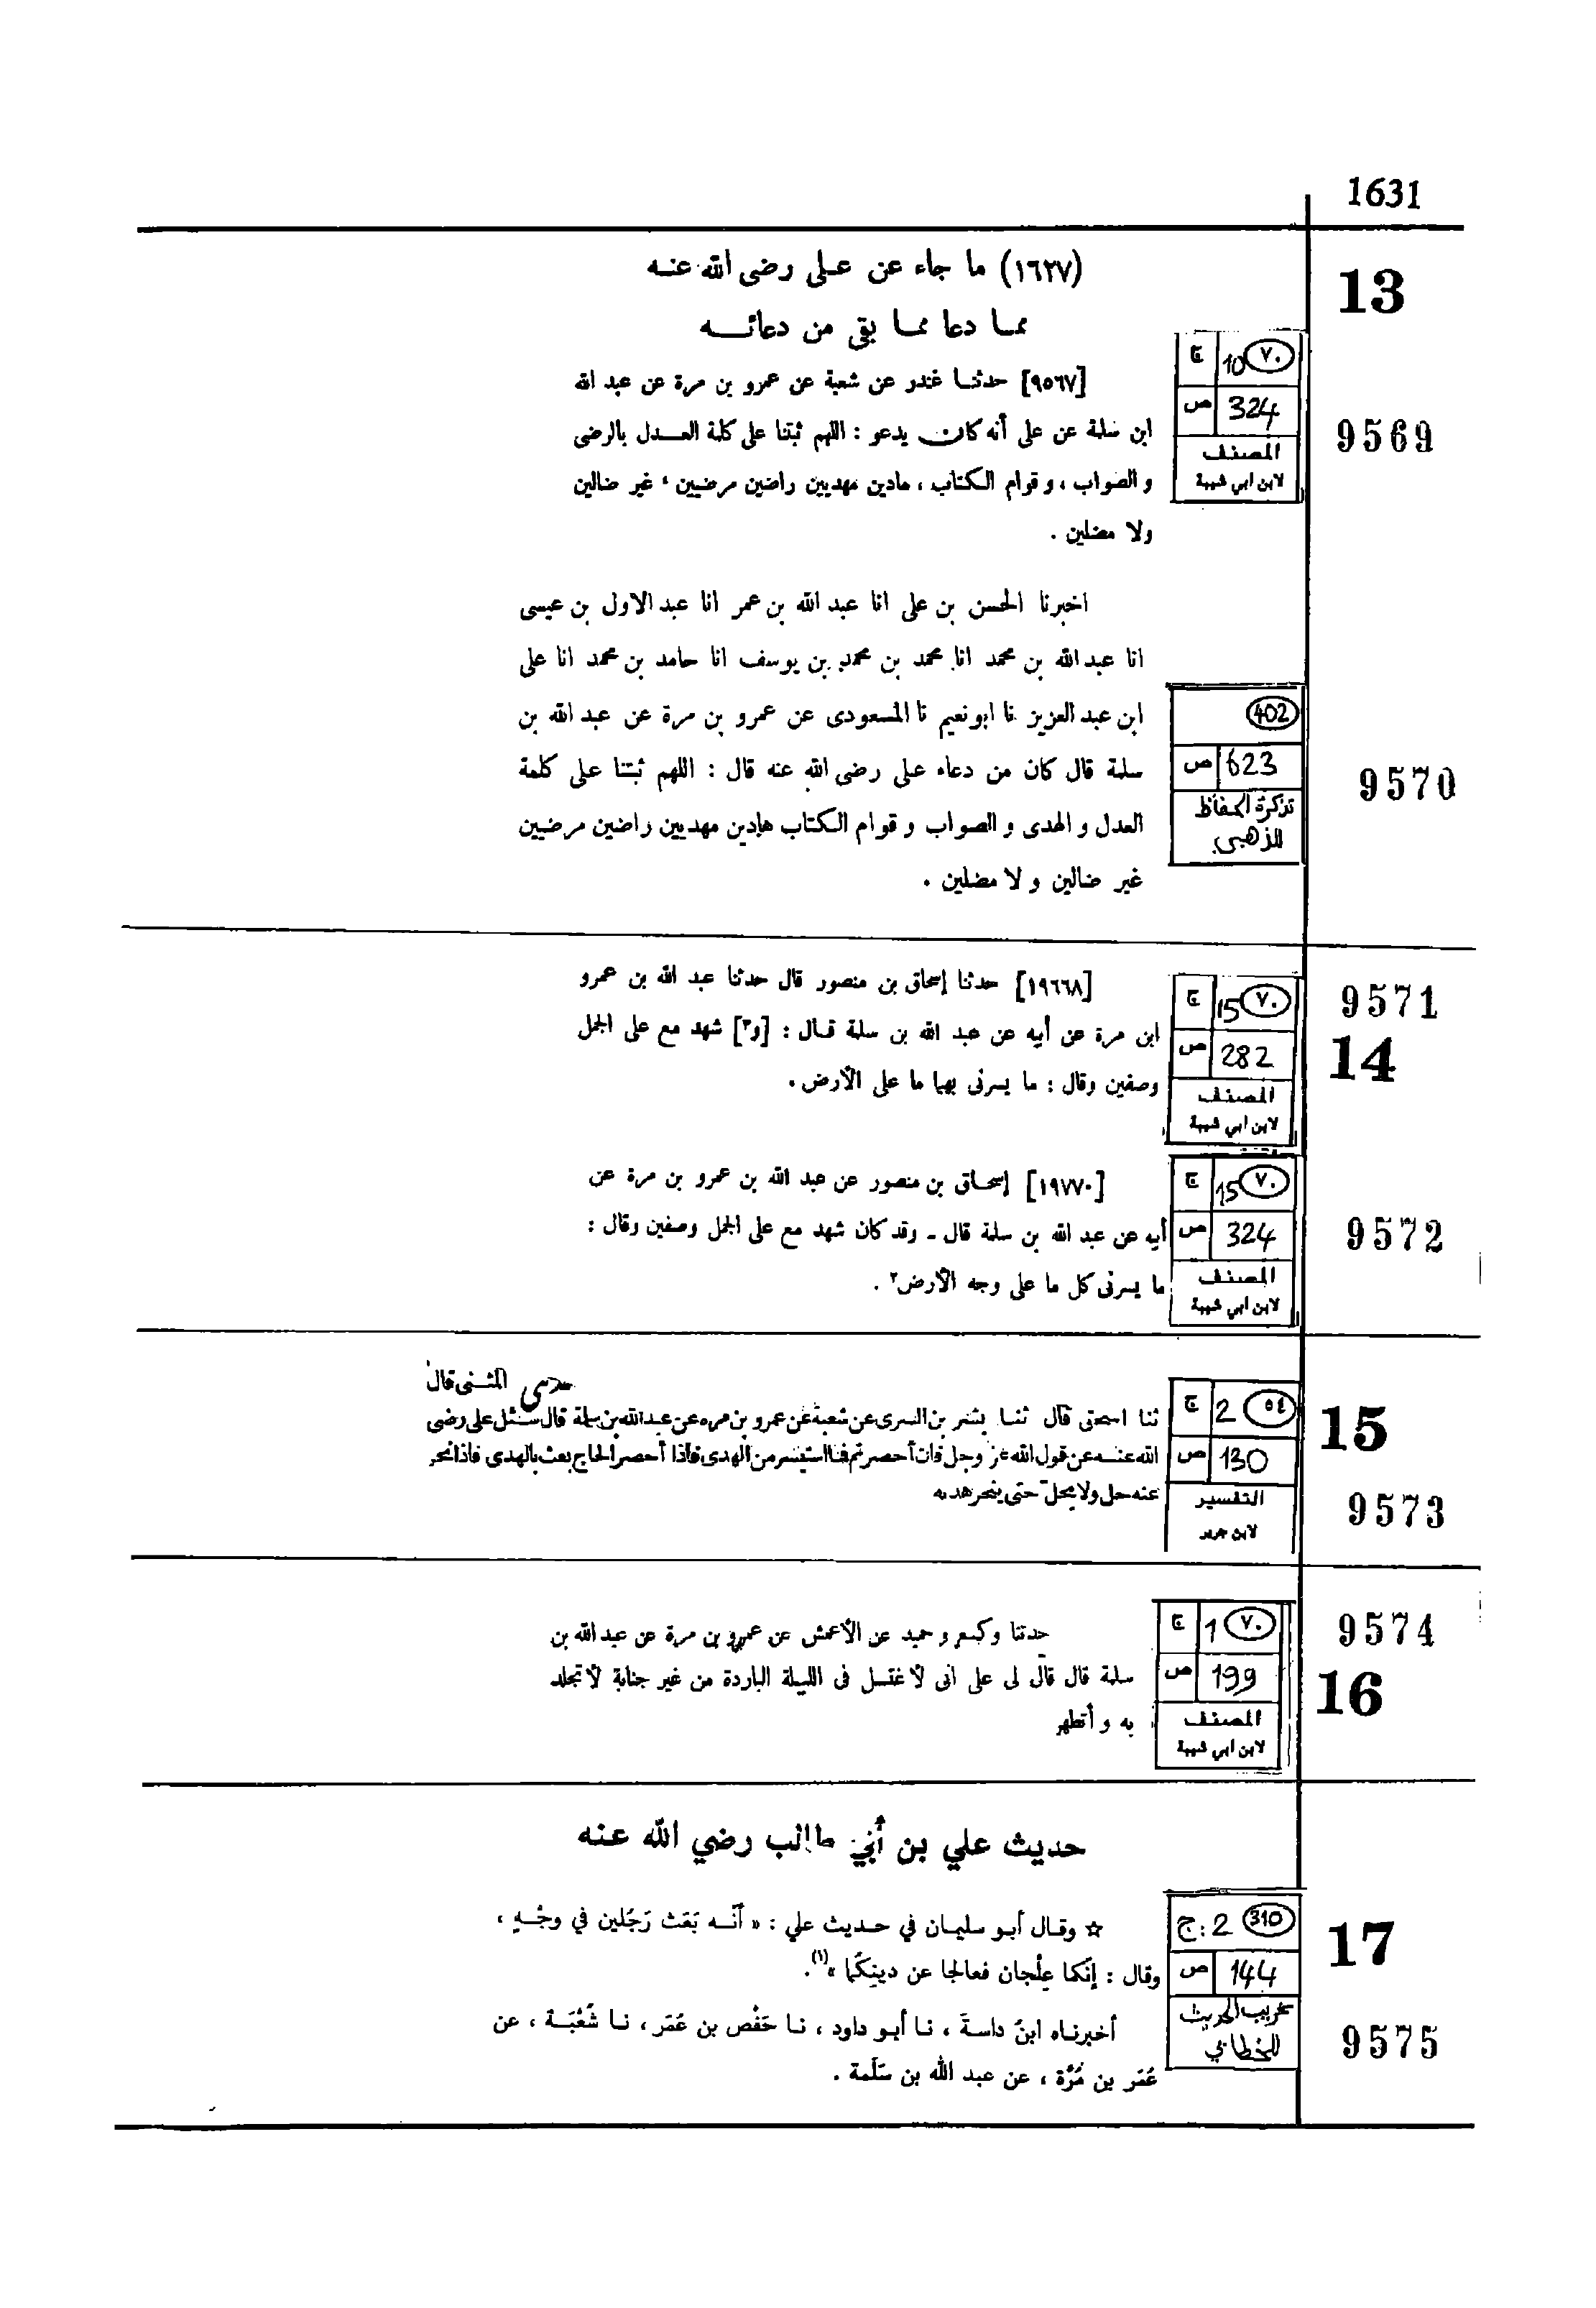 1631
13
(١٦٣٧) ما جاء عن علي رضى الله عنه
مما دعا مما بقى من دعائه
ج 10 ٧٠
ص 324
المصنف
لابن ابي شيبة
9569
[٩٥٦٧] حدثنا غندر عن شعبة عن عمرو بن مرة عن عبد الله
ابن سلمة عن على أنه كان يدعو : اللهم ثبتنا على كلمة العدل بالرضى
و الصواب ، و قوام الكتاب ، هادين مهديين راضين مرضيين ، غير ضالين
ولا مضلين .
اخبرنا الحسن بن على انا عبد الله بن عمر انا عبد الاول بن عيسى
انا عبد الله بن محمد انا محمد بن محمد بن يوسف انا حامد بن محمد انا على
ابن عبد العزيز نا ابو نعيم نا المسعودى عن عمرو بن مرة عن عبد الله بن
سلمة قال كان من دعاء على رضى الله عنه قال : اللهم ثبتنا على كلمة
العدل و الهدى و الصواب و قوام الكتاب هادين مهديين راضين مرضيين
غير ضالين و لا مضلين .
402
ص 623
تذكرة الحفاظ
للذهبي
9570
[١٩٦٦٨] حدثنا إسحاق بن منصور قال حدثنا عبد الله بن عمرو
ابن مرة عن أبيه عن عبد الله بن سلمة قال : [و٣] شهد مع على الجمل
وصفين وقال : ما يسرنى بهما ما على الأرض .
ج 15 ٧٠
ص 282
المصنف
لابن ابي شيبة
9571
14
[١٩٧٧٠] إسحاق بن منصور عن عبد الله بن عمرو بن مرة عن
أبيه عن عبد الله بن سلمة قال ـ وقد كان شهد مع على الجمل وصفين وقال :
ما يسرنى كل ما على وجه الأرض٢ .
ج 15 ٧٠
ص 324
المصنف
لابن ابي شيبة
9572
حدثنى المثنى قال
ثنا اسحق قال ثنا بشر بن السرى عن شعبة عن عمرو بن مره عن عبد الله بن سلمة قال سئل على رضى
الله عنه عن قول الله عز وجل فان أحصرتم فما استيسر من الهدى فاذا أحصر الحاج بعث بالهدى فاذا نحر
عنه حل ولا يحل حتى ينحر هديه
ج 2 ٥٤
ص 130
التفسير
لابن جرير
15
9573
حدثنا وكيع و حميد عن الأعمش عن عمرو بن مرة عن عبد الله بن
سلمة قال قال لى على انى لأغتسل فى الليلة الباردة من غير جنابة لأتجلد
به و أتطهر
ج 1 ٧٠
ص 199
المصنف
لابن ابي شيبة
9574
16
حديث علي بن أبي طالب رضي الله عنه
☆ وقال أبو سليمان في حديث علي : « أنّه بَعَث رَجُلين في وجْهٍ ،
وقال : إنّكما عِلْجان فعالجا عن دينِكُما »(١).
أخبرناه ابنُ داسةَ ، نا أبو داود ، نا حَفْص بن عُمَر ، نا شُعْبَة ، عن
عُمَر بن مُرَّة ، عن عبد الله بن سَلَمة .
ج : 2 310
ص 144
غريب الحديث
للخطابي
17
9575